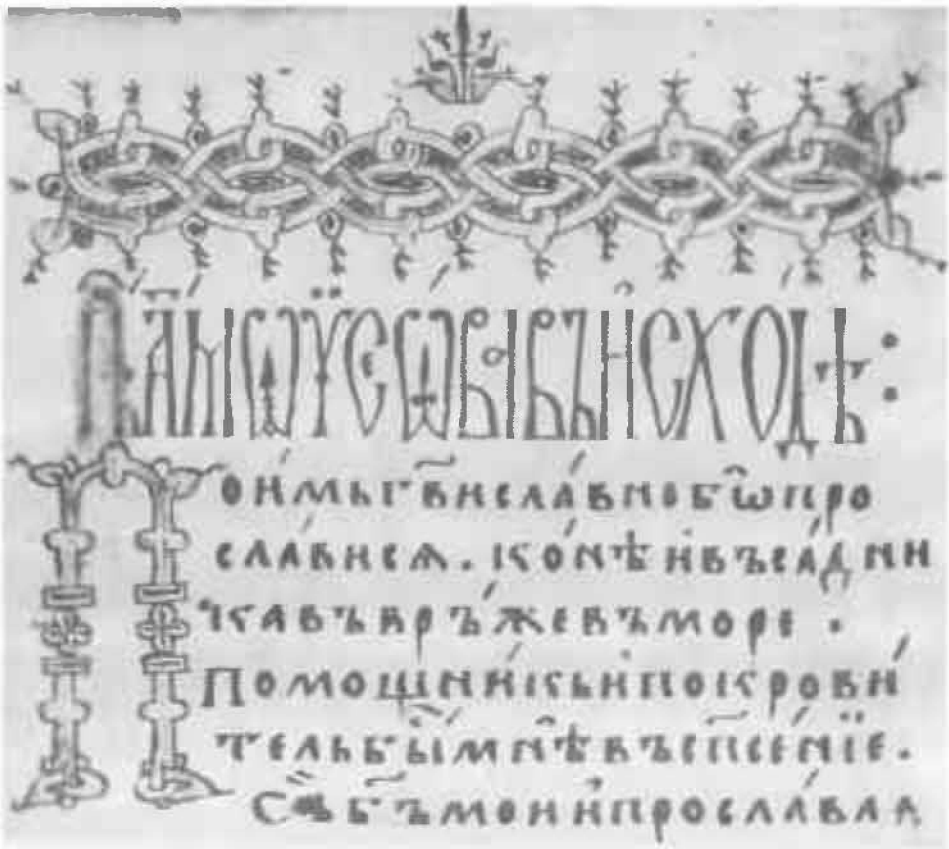 мѡѷсеѡвы въ исходѣ:
Поимь г҃ви славно бѡ про
слависѧ. конѣ и въсадни
ка въвръже въ море.
Помощникь и покрови
тель бы мнѣ въ сп҃сенїе.
Сь б҃ъ мои и прославлѧ